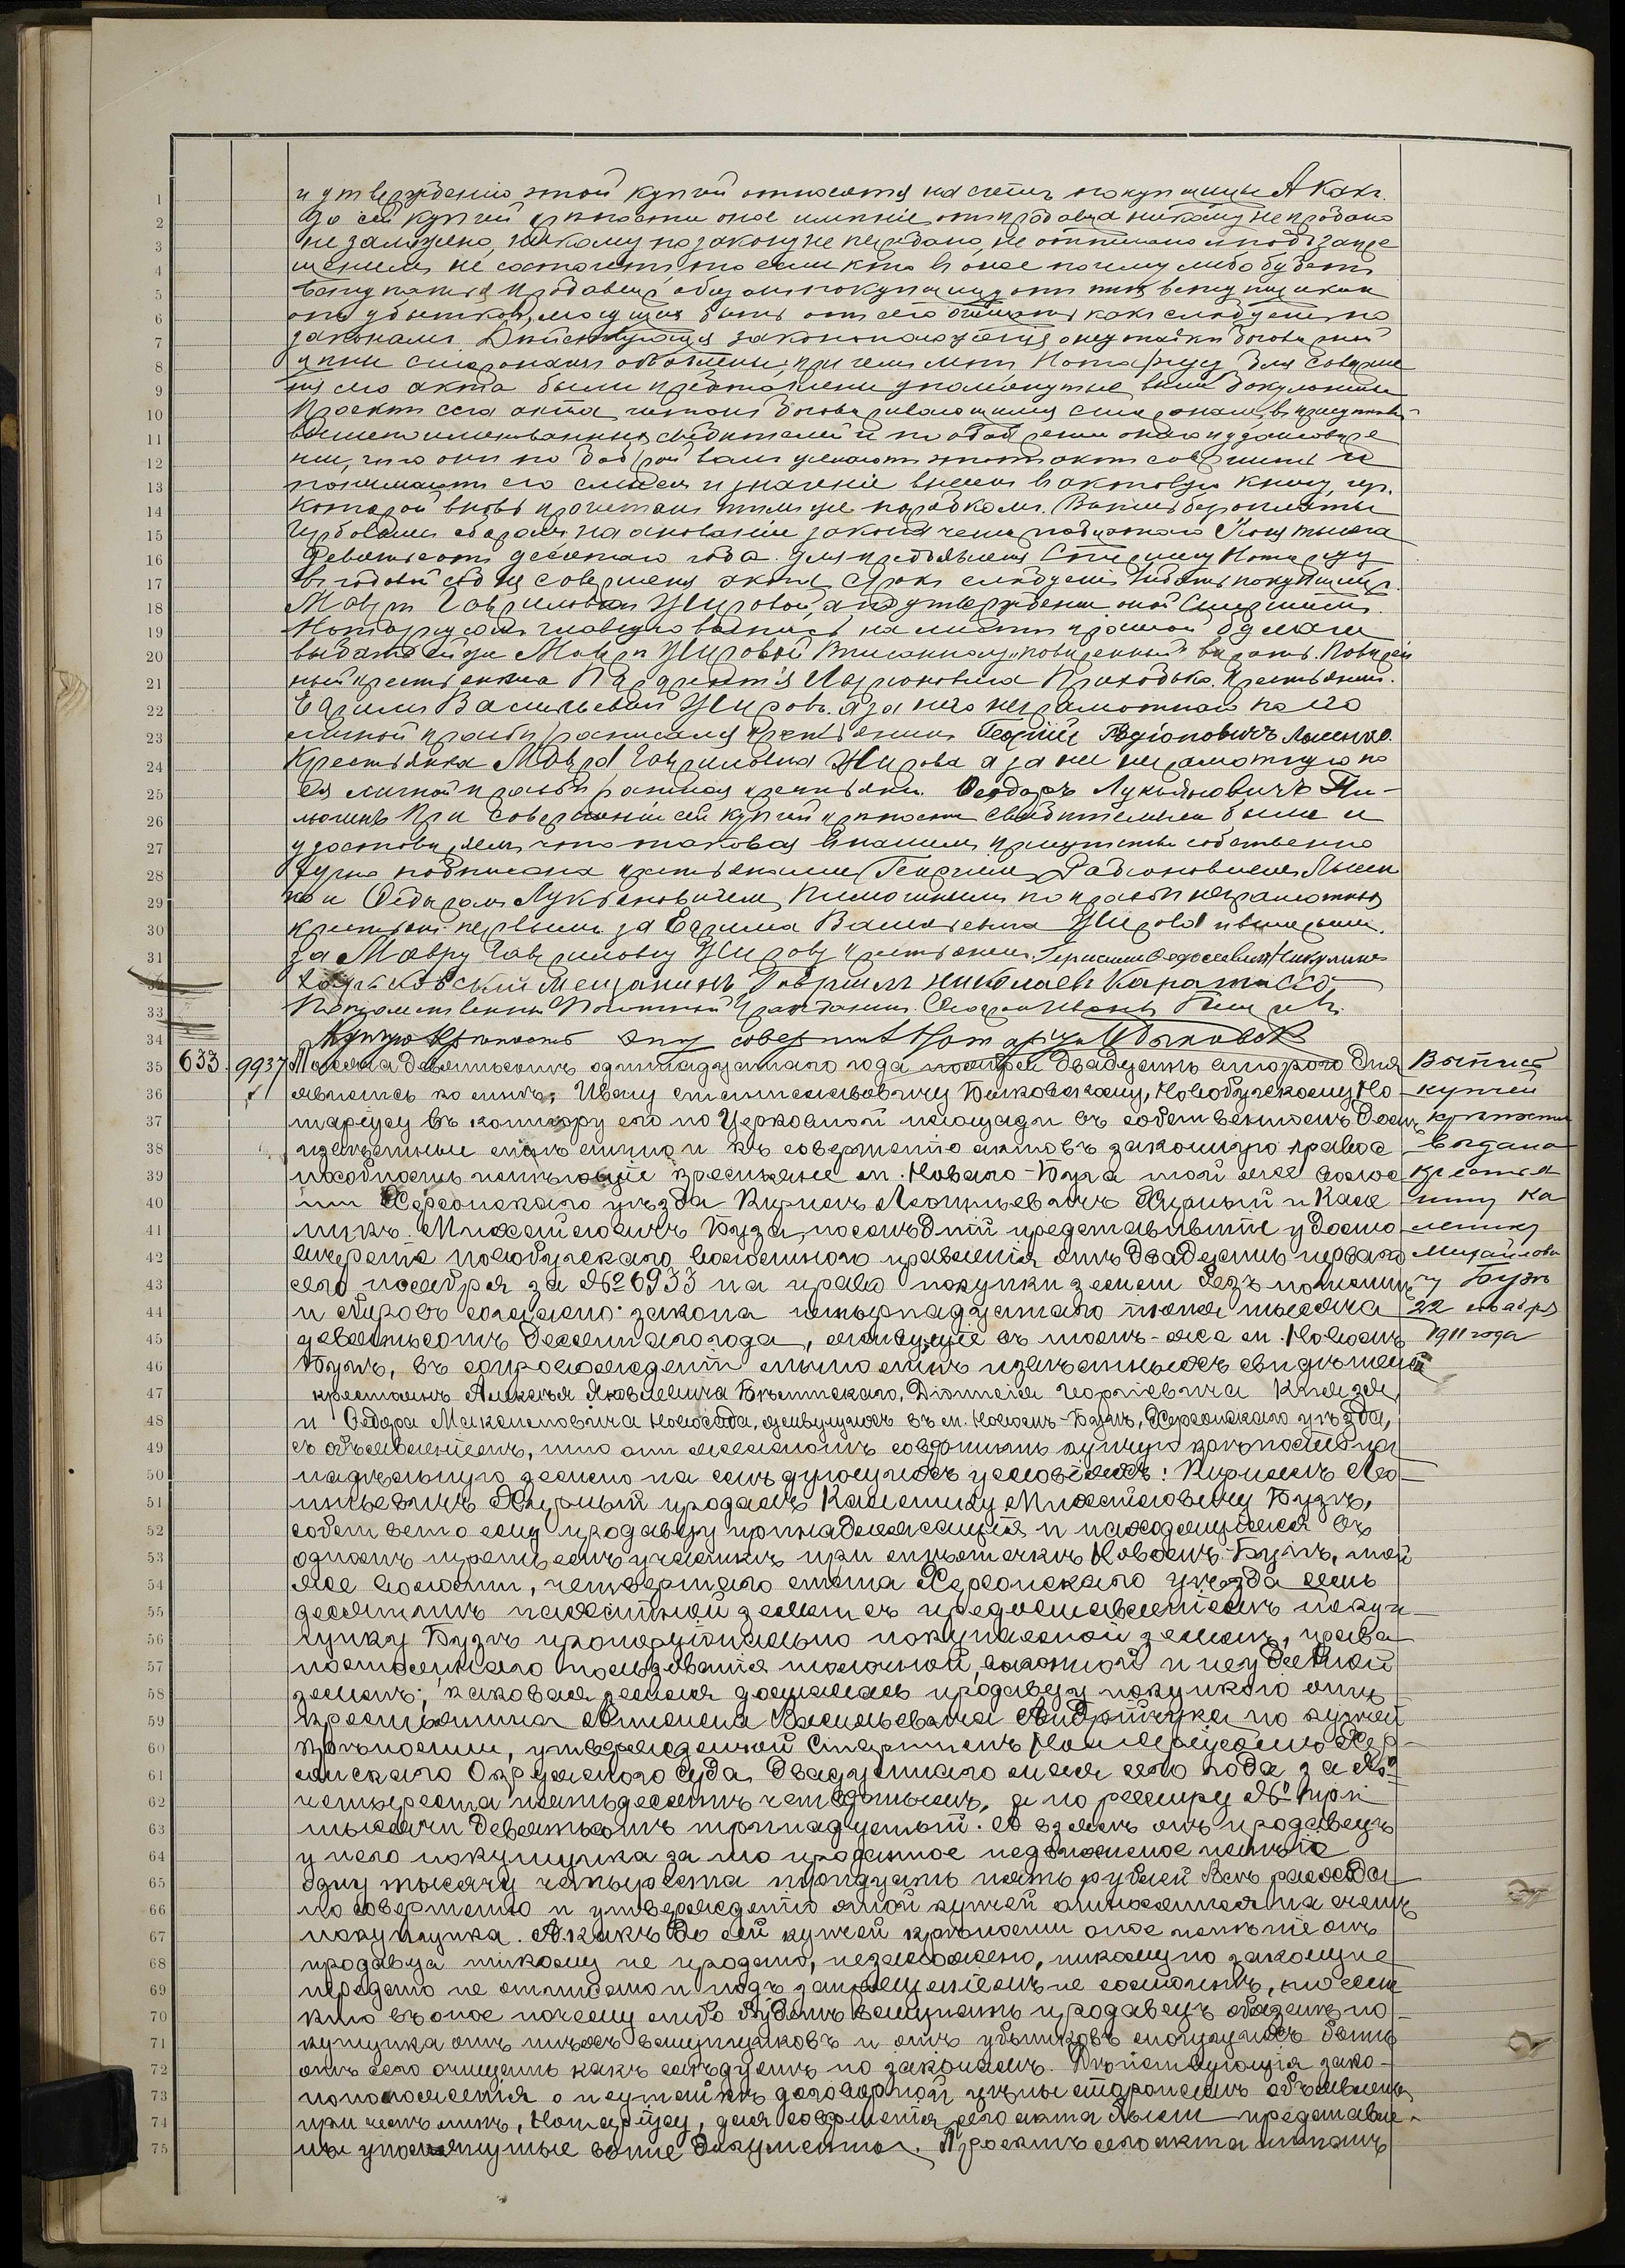 и утвержденію этой купчей относятся на счетъ покупщицы А какъ
до сей купчей крѣпости оное имѣніе отъ продавца никому не продано
не заложено, никому по закону не передано, не отписано и подъ запре
щеніемъ не состоитъ то если кто въ оное почему либо будетъ
вступаться продавецъ обязанъ покупщицу отъ тѣхъ вступщиковъ
отъ убытковъ, могущихъ быть отъ сего очищать какъ слѣдуетъ по
законамъ. Дѣйствующія законоположенія о неутайкѣ договорной
цѣны сторонамъ объявлены; при чемъ мнѣ Нотаріусу для соверше
нія сего акта были представлены упомянутые выше документы
Проектъ сего акта читанъ договаривающимся сторонамъ, въ присутстві
вышепоименованныхъ свидѣтелей и по одобреніи онаго и удостовѣре
ніи, что они по доброй волѣ желаютъ этотъ актъ совершить и
понимаютъ его смыслъ и значеніе внесенъ въ актовую книгу, изъ
которой вновь прочитанъ тѣмъ же порядкомъ.
на основаніи закона четырнадцатаго Іюня тысяча
девятьсотъ десятаго года. Для предъявленія Старшему Нотаріусу
въ годовой со дня совершенія акта срокъ слѣдуетъ выдать покупщицѣ
Маврѣ Гавриловнѣ Жировой, а по утвержденіи оной Старшимъ
Нотаріусомъ главную выпись на листѣ красной бумаги
выдать ей же Маврѣ Жировой
Парфентія Ларіоновича Приходько. Крестьянинъ
Ефимъ Васильевъ Жировъ. а за него неграмотнаго по его
личной просьбѣ росписался крестьянинъ Георгій Родіоновичъ Лысенко.
Крестьянка Мавра Гавриловна Жирова а за нее неграмотную по
ея личной просьбѣ росписался крестьянинъ Ѳеодоръ Лукьяновичъ Пи-
люгинъ При совершеніи сей купчей крѣпости свидѣтелями были и
удостовѣряемъ что таковая въ нашемъ присутствіи собственно
ручно подписана крестьянами Георгіемъ Родіоновичемъ Лысен
ко и Ѳедоромъ Лукьяновичемъ Пилюгинымъ по просьбѣ неграмотныхъ
крестьянъ первымъ за Ефима Васильевича Жирова и вторымъ
за Мавру Гавриловну Жирову крестьянинъ. Герасимъ Ѳедосеевичъ Никулинъ
Мещанинъ Гавріилъ Николаевъ
Потомственный Почетный Гражданинъ
Купчую крѣпость эту совершилъ Нотаріусъ И. Быковскій
633 9937 Тысяча девятьсотъ одиннадцатаго года ноября двадцать второго дня
явились ко мнѣ, Ивану Станиславовичу Быковскому, Новобугскому Но
таріусу въ контору его по Церковной площади въ собственномъ домѣ
извѣстные мнѣ лично и къ совершенію актовъ законную право
способность имѣющіе крестьяне м. Новаго-Буга той же волос
ти Херсонскаго уѣзда Кириллъ Леонтьевичъ Жирный и Кале
никъ Михайловичъ Буза, послѣдній представившій удосто
вѣреніе новобугскаго волостного правленія отъ двадцать перваго
сего ноября за № 6933 на право покупки земли безъ пошлинъ
и сборовъ согласно закона четырнадцатаго іюня тысяча
девятьсотъ десятаго года, живущіе въ томъ-же м. Новомъ
Бугѣ, въ сопровожденіи лично мнѣ извѣстныхъ свидѣтелей
крестьянъ Алексѣя Яковлевича Бѣлинскаго, Діонисія Георгіевича Князя
и Ѳедора Максимовича Новосада, живущихъ въ м. Новомъ-Бугѣ, Херсонскаго уѣзда,
съ объявленіемъ, что они желаютъ совершить купчую крѣпость на
надѣльную землю на слѣдующихъ условіяхъ: Кириллъ Лео-
нтьевичъ Жирный продалъ Каленику Михайловичу Бузѣ,
собственно ему продавцу принадлежащія и находящіяся въ
одномъ третьемъ участкѣ при мѣстечкѣ Новомъ-Бугѣ, той
же волости, четвертаго стана Херсонскаго уѣзда семь
десятинъ пахатной земли съ предоставленіемъ покуп-
щику Бузѣ пропорціонально покупаемой землѣ, права
постояннаго пользованія толочной, выгонной и неудобной
землѣ; каковая земля досталась продавцу покупкою отъ
крестьянина Алексѣя Васильевича Андрійчука по купчей
крѣпости, утвержденной Старшимъ Нотаріусомъ Хер-
сонскаго Окружнаго Суда двадцатаго мая сего года за №
четыреста пятьдесятъ четвертымъ, а по реестру № три
тысячи девятьсотъ тринадцатый. А взялъ онъ продавецъ
у него покупщика за то проданное недвижимое имѣніе
одну тысячу четыреста тридцать пять рублей Всѣ расходы
по совершенію и утвержденію этой купчей относятся на счетъ
покупщика. А какъ до сей купчей крѣпости оное имѣніе отъ
продавца никому не продано, незаложено, никому по закону не
передано не отписано и подъ запрещеніемъ не состоитъ, то если
кто въ оное почему либо будетъ вступать продавецъ обязанъ по-
купщика отъ тѣхъ вступщиковъ и отъ убытковъ могущихъ быть
отъ сего очищать какъ слѣдуетъ по законамъ. Дѣйствующія зако-
ноположенія о неутайкѣ договорной цѣны сторонамъ объявлены
при чемъ мнѣ, Нотаріусу, для совершенія сего акта были представле-
ны упомянутые выше документы. Проектъ сего акта читанъ
Выпись
купчей
крѣпости
выдана
крестья
нину Ка
ленику
Михайлови
чу Бузѣ
22 ноября
1911 года